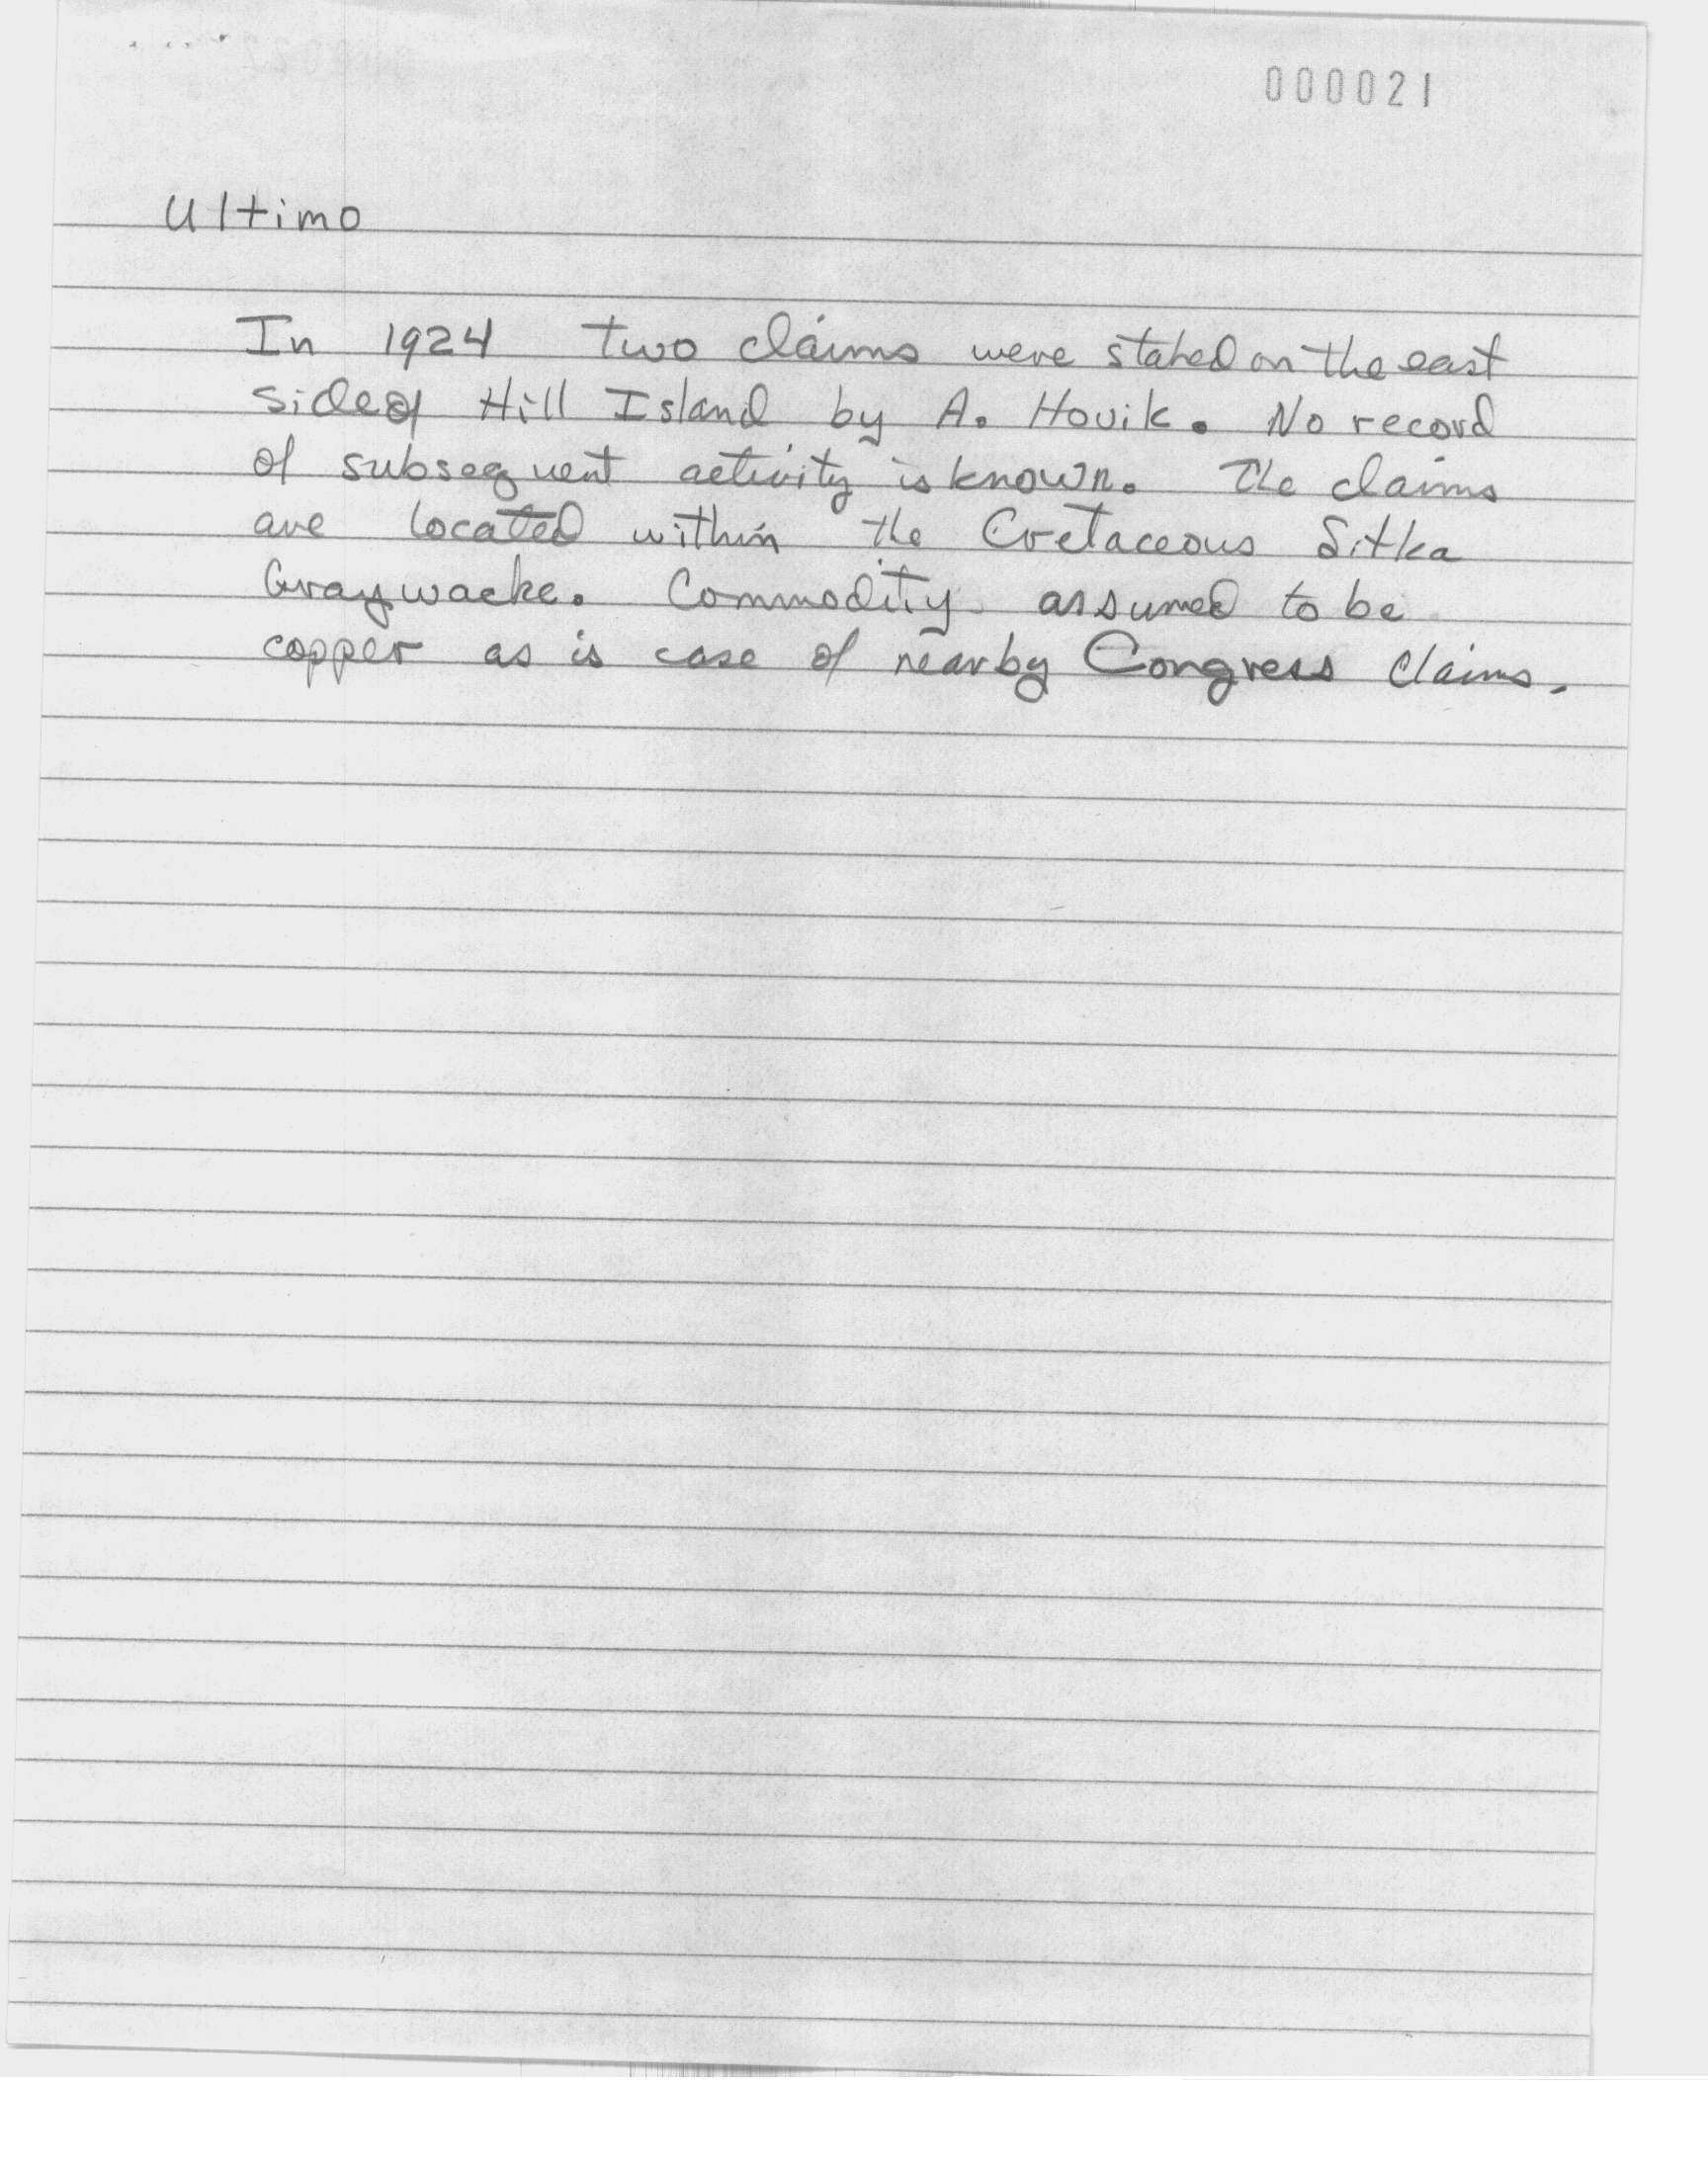 000021
Ultimo
In 1924 two claims were staked on the east
side of Hill Island by A. Hovik. No record
of subsequent activity is known. The claims
are located within the Cretaceous Sitka
Graywacke. Commodity assumed to be
copper as is case of nearby Congress claims.